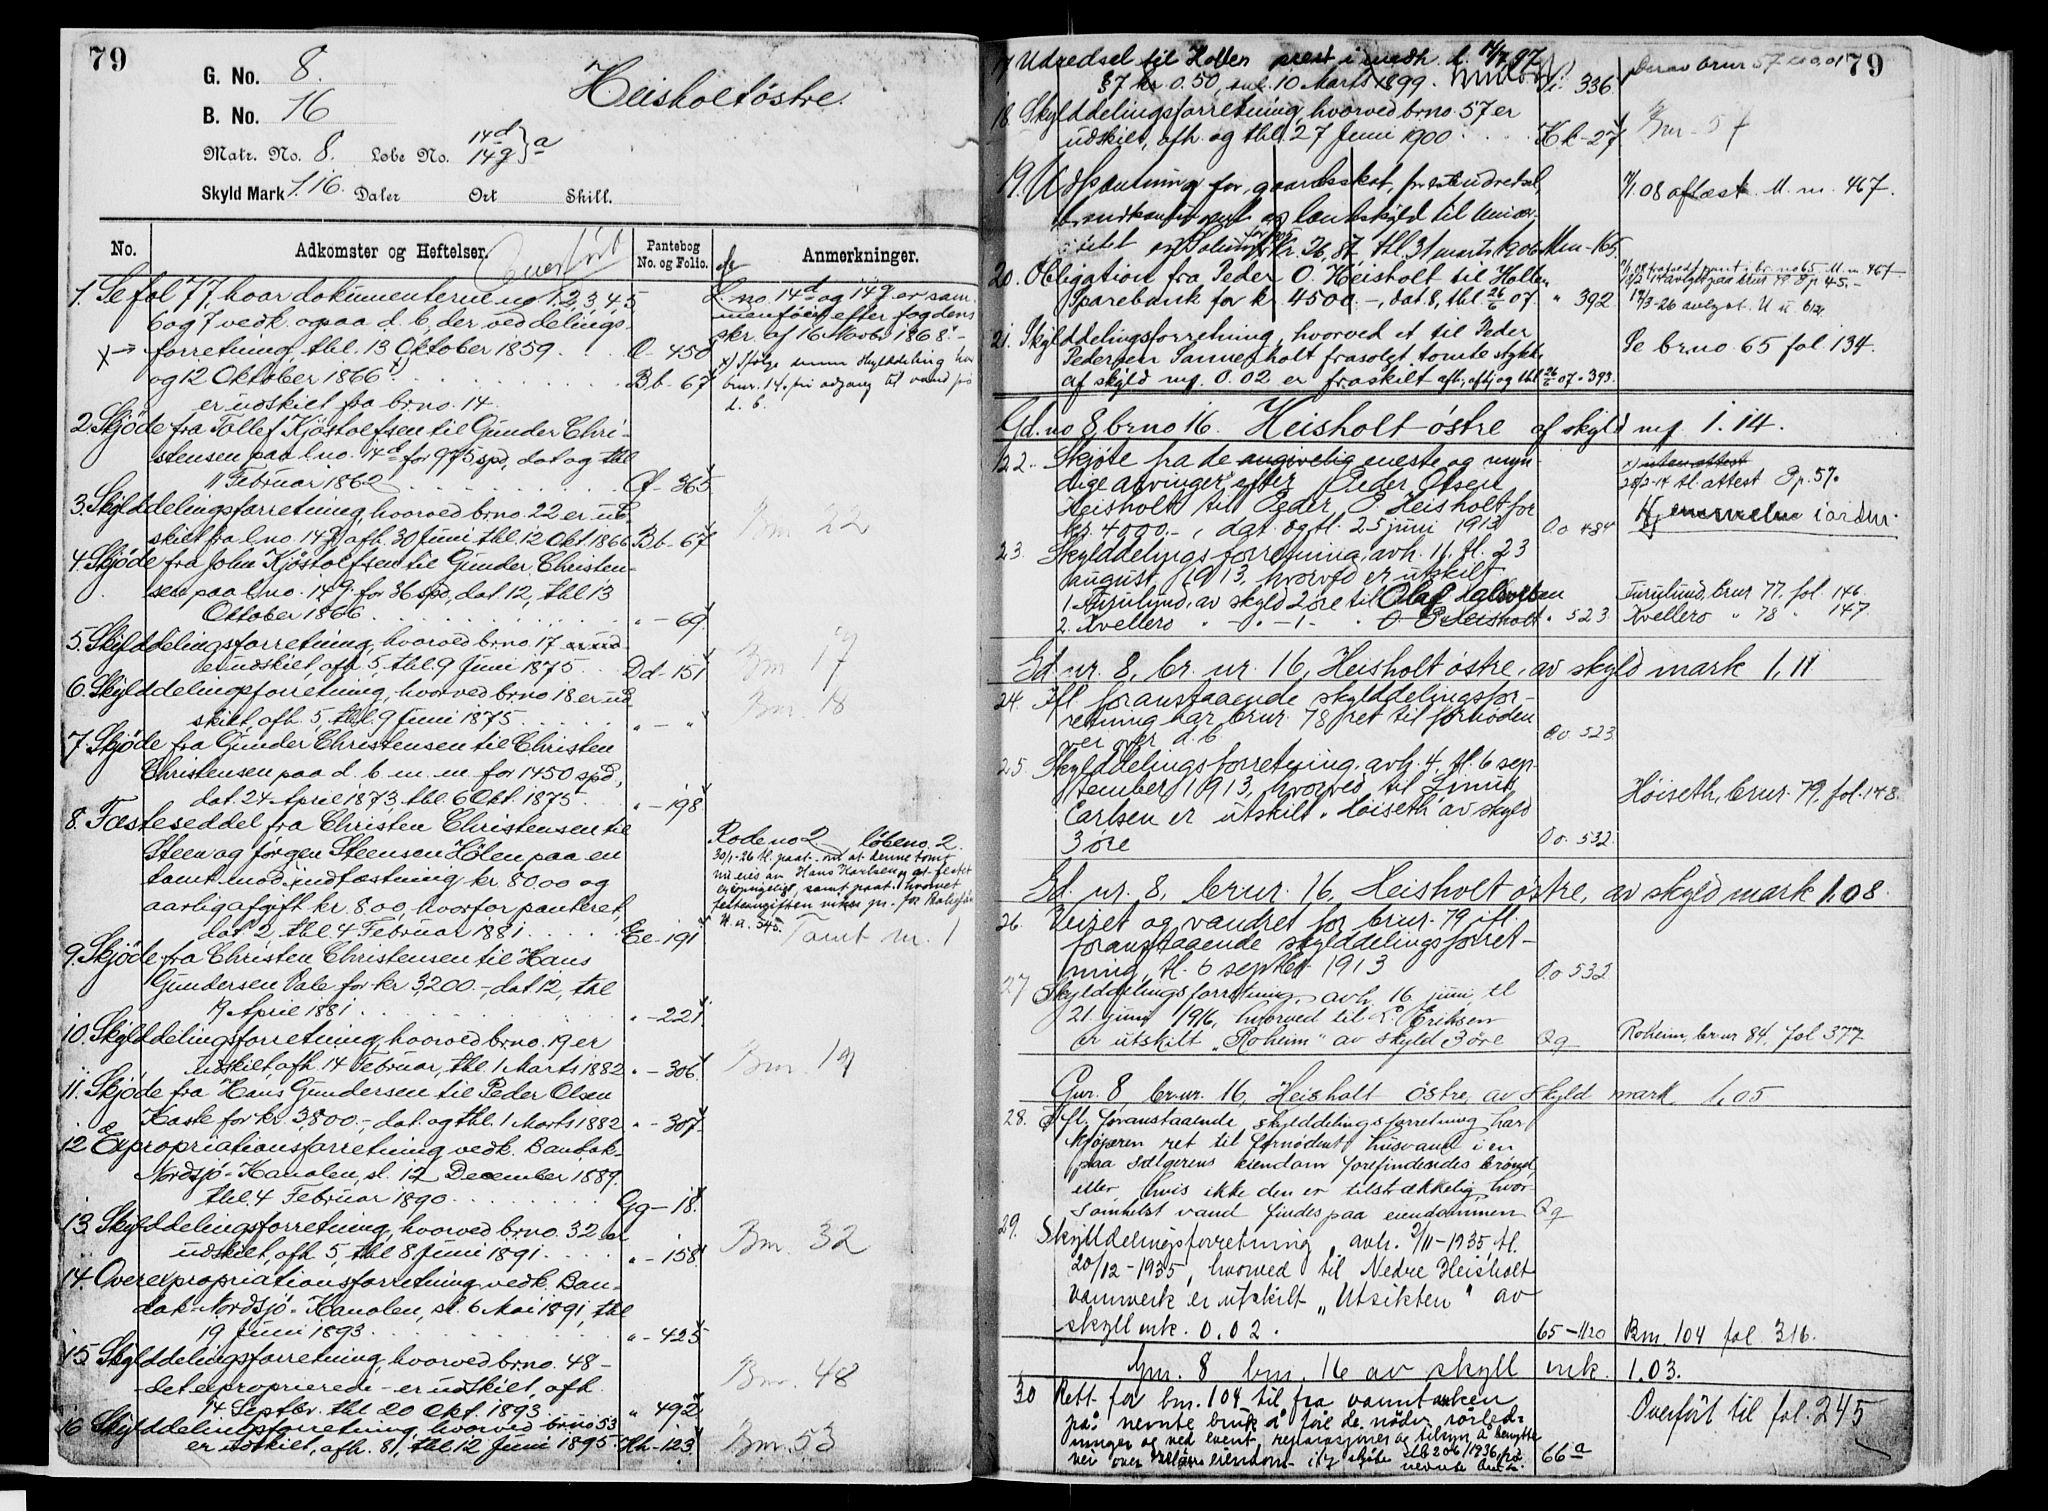 79
G. No. 8.
Heisholt østre.
B. No. 16
Matr. No. 8. Løbe No. 14d 14g } a
Skyld Mark 1.16. Daler Ort Skill.
No. Adkomster og Heftelser. Pantebog No. og Folio. Anmerkninger.
Overført
1. Se fol 77, hvor dokumenterne no 1, 2, 3, 4, 5
6 og 7 vedk. ogsaa d. b, der ved delings-
forretning, thl. 13 Oktober 1859 . . . O - 450
og 12 Oktober 1866 . . . Bb - 67
er udskilt fra brno. 14.
L. no. 14d og 14g er sam-
menføiet efter fogdens
skr. af 16 Novbr 1868. -
x) Ifølge samme skylddeling har
brnr. 14. fri adgang til vand på
d. b.
2. Skjøde fra Tollef Kjøstolfsen til Gunder Chri-
stensen paa lno. 14d for 975 spd, dat og thl
11 Februar 1862 . . . - 365
3. Skylddelingsforretning, hvorved brno. 22 er ud-
skilt fra lno. 14g, afh. 30 Juni, thl. 12 Okt 1866 Bb - 67
Bnr 22
4. Skjøde fra John Kjøstolfsen til Gunder Christen-
sen paa lno. 14g for 36 spd, dat 12, thl 13
Oktober 1866 . . . " - 69.
5. Skylddelingsforretning, hvorved brno. 17
er udskilt, afh. 5, thl. 9 Juni 1875 . . Dd - 151
Bnr 17
6. Skylddelingsforretning, hvorved brno 18 er ud-
skilt, afh. 5, thl. 9 Juni 1875 . . . " - "
Bnr 18
7. Skjøde fra Gunder Christensen til Christen
Christensen paa d. b. m. m. for 1450 spd,
dat. 24 April 1873, thl. 6 Okt. 1875 . . " - 198
8. Fæsteseddel fra Christen Christensen til
Steen og Jørgen Steensen Holen paa en
tomt mod indfæstning kr. 80.00 og
aarlig afgift kr. 8.00, hvorfor panteret,
dat 2, thl. 4 Februar 1881 . . . Ee - 191
Rode no 2 løbeno. 2.
30/1-26 tl. paat. om at denne tomt
nu eies av Hans Karlsen, at festet
er uopsigeligt, samt paat. hvorvet
U. a. 345.
Tomt nr. 1
9. Skjøde fra Christen Christensen til Hans
Gundersen Vale for kr 3,200.-, dat 12, thl
19 April 1881 . . . " - 221
10. Skylddelingsforretning, hvorved brno. 19 er
udskilt, afh. 14 Februar, thl. 1 Marts 1882 " - 306.
Bnr. 19
11. Skjøde fra Hans Gundersen til Peder Olsen
Kaste for kr. 3,800.-, dat. og thl. 1 Marts 1882 " - 307
12. Expropriationsforretning vedk. Bandak-
Nordsjø-Kanalen, sl. 12 December 1889.
thl. 4 Februar 1890 . . . Gg - 18.
13. Skylddelingsforretning, hvorved brno. 32 er
udskilt, afh. 5, thl 8 Juni 1891 . . . " - 158
Bnr. 32
14. Overexpropriationsforretning vedk. Ban-
dak-Nordsjø-Kanalen, sl. 6 Mai 1891, thl
19 Juni 1893 . . . " - 425
15. Skylddelingsforretning, hvorved brno. 48 -
det exproprierede - er udskilt, afh.
14 Septbr. thl 20 Okt. 1893 " 492
Bnr. 48
16. Skylddelingsforretning, hvorved brno 53
er udskilt, afh. 81, thl. 12 Juni 1895. Hh - 123
Bnr. 53
79
17. Udredsel til Hollen prest i medh. l. 14/7 97
37 kr. 0.50, 10 Marts 1899. Ii. 336
Derav brnr 57
18. Skylddelingsforretning, hvorved brno. 57 er
udskilt, afh. og thl. 27 Juni 1900 . . . Kk - 27
Bnr 57
19. Udpantning for gaardsskat, presteudredsel,
brandkontingent og landskyld til Univer-
sitet kr. 26,87, thl. 31 marts 1906 Mm - 165.
7/1.08 aflæst M. m. 467.
20. Obligation fra Peder O. Heisholt til Hollen
Sparebank for kr 4500.-, dat. 8, thl 26/6 07 " 392
br no 65 M. m 467
19/3-26 avlyst. U u 612
21. Skylddelingsforretning, hvorved et til Peder
Pedersen Sannesholt frasolgt tomtestykke
af skyld mf. 0.02 er fraskilt afh., afhj og thl 26/6 07 " 393.
Se br.no. 65 fol. 134.
Gd. no 8 brno 16. Heisholt østre af skyld mf. 1.14.
22. Skjøte fra de angivelig eneste og myn-
dige arvinger efter Peder Olsen
Heisholt til Peder O. Heisholt for
kr. 4000.-, dat. og tl. 25 juni 1913 Oo 484
x) uten attest
28/2-14 tl. attest Pp. 57.
Hjemmelen i orden.
23. Skylddelingsforretning, avh. 11. tl. 23
august 1913, hvorved er utskilt
1. Furulund, av skyld 2 øre til Olaf Halvorsen
2. Kvellero " - " - 1 - " O Heisholt " 523
Furulund, brnr 77, fol. 146.
Kvellero " 78 " 147.
Gd. nr. 8, br. nr. 16, Heisholt østre, av skyld mark 1,11
24. Ifl. foranstaaende skylddelingsfor-
retning har brnr. 78 ret til fornøden
vei over d. b. Oo 523
25. Skylddelingsforretning, avh. 4. tl. 6 sep-
tember 1913, hvorved til Linus
Carlsen er utskilt "Høiseth" av skyld
3 øre Oo. 532
Høiseth, brnr. 79, fol. 148.
Gd. nr. 8, brnr. 16, Heisholt østre, av skyld mark 1.08.
26. Veiret og vandret for brnr. 79 ifl.
foranstaaende skylddelingsforret-
ning, tl. 6 septbr 1913 Oo 532
27 Skylddelingsforretning, avh. 16 juni, tl
21 juni 1916, hvorved til Eriksen
er utskilt "Roheim" av skyld 3 øre Qq
Roheim, brnr 84, fol 377
Gnr. 8 brnr. 16, Heisholt østre, av skyld mark 1,05
28. Ifl. foranstaaende skylddelingsforretning har
kjøperen ret til fornødent husvand i en
paa sælgerens eiendom forefindendes brønd
eller, hvis ikke den er tilstrækkelig, hvor-
somhelst vand findes paa eiendommen Qq
29. Skylddelingsforretning, avh. 9/11-1935, tl.
20/12-1935, hvorved til Nedre Heisholt
vannverk er utskilt "Utsikten" av
skyll mk. 0.02. 65 - 1120 Bnr. 104 fol. 316.
Gnr. 8 bnr. 16 av skyll mk. 1.03.
30 Rett for bnr. 104 til fra vanntanken
på nevnte bruk å føre de nødv. rørled-
ninger og ved event. reparasjoner og tilsyn å benytte
vei over eiendom ifl skjøte 66a
Overført til fol. 245